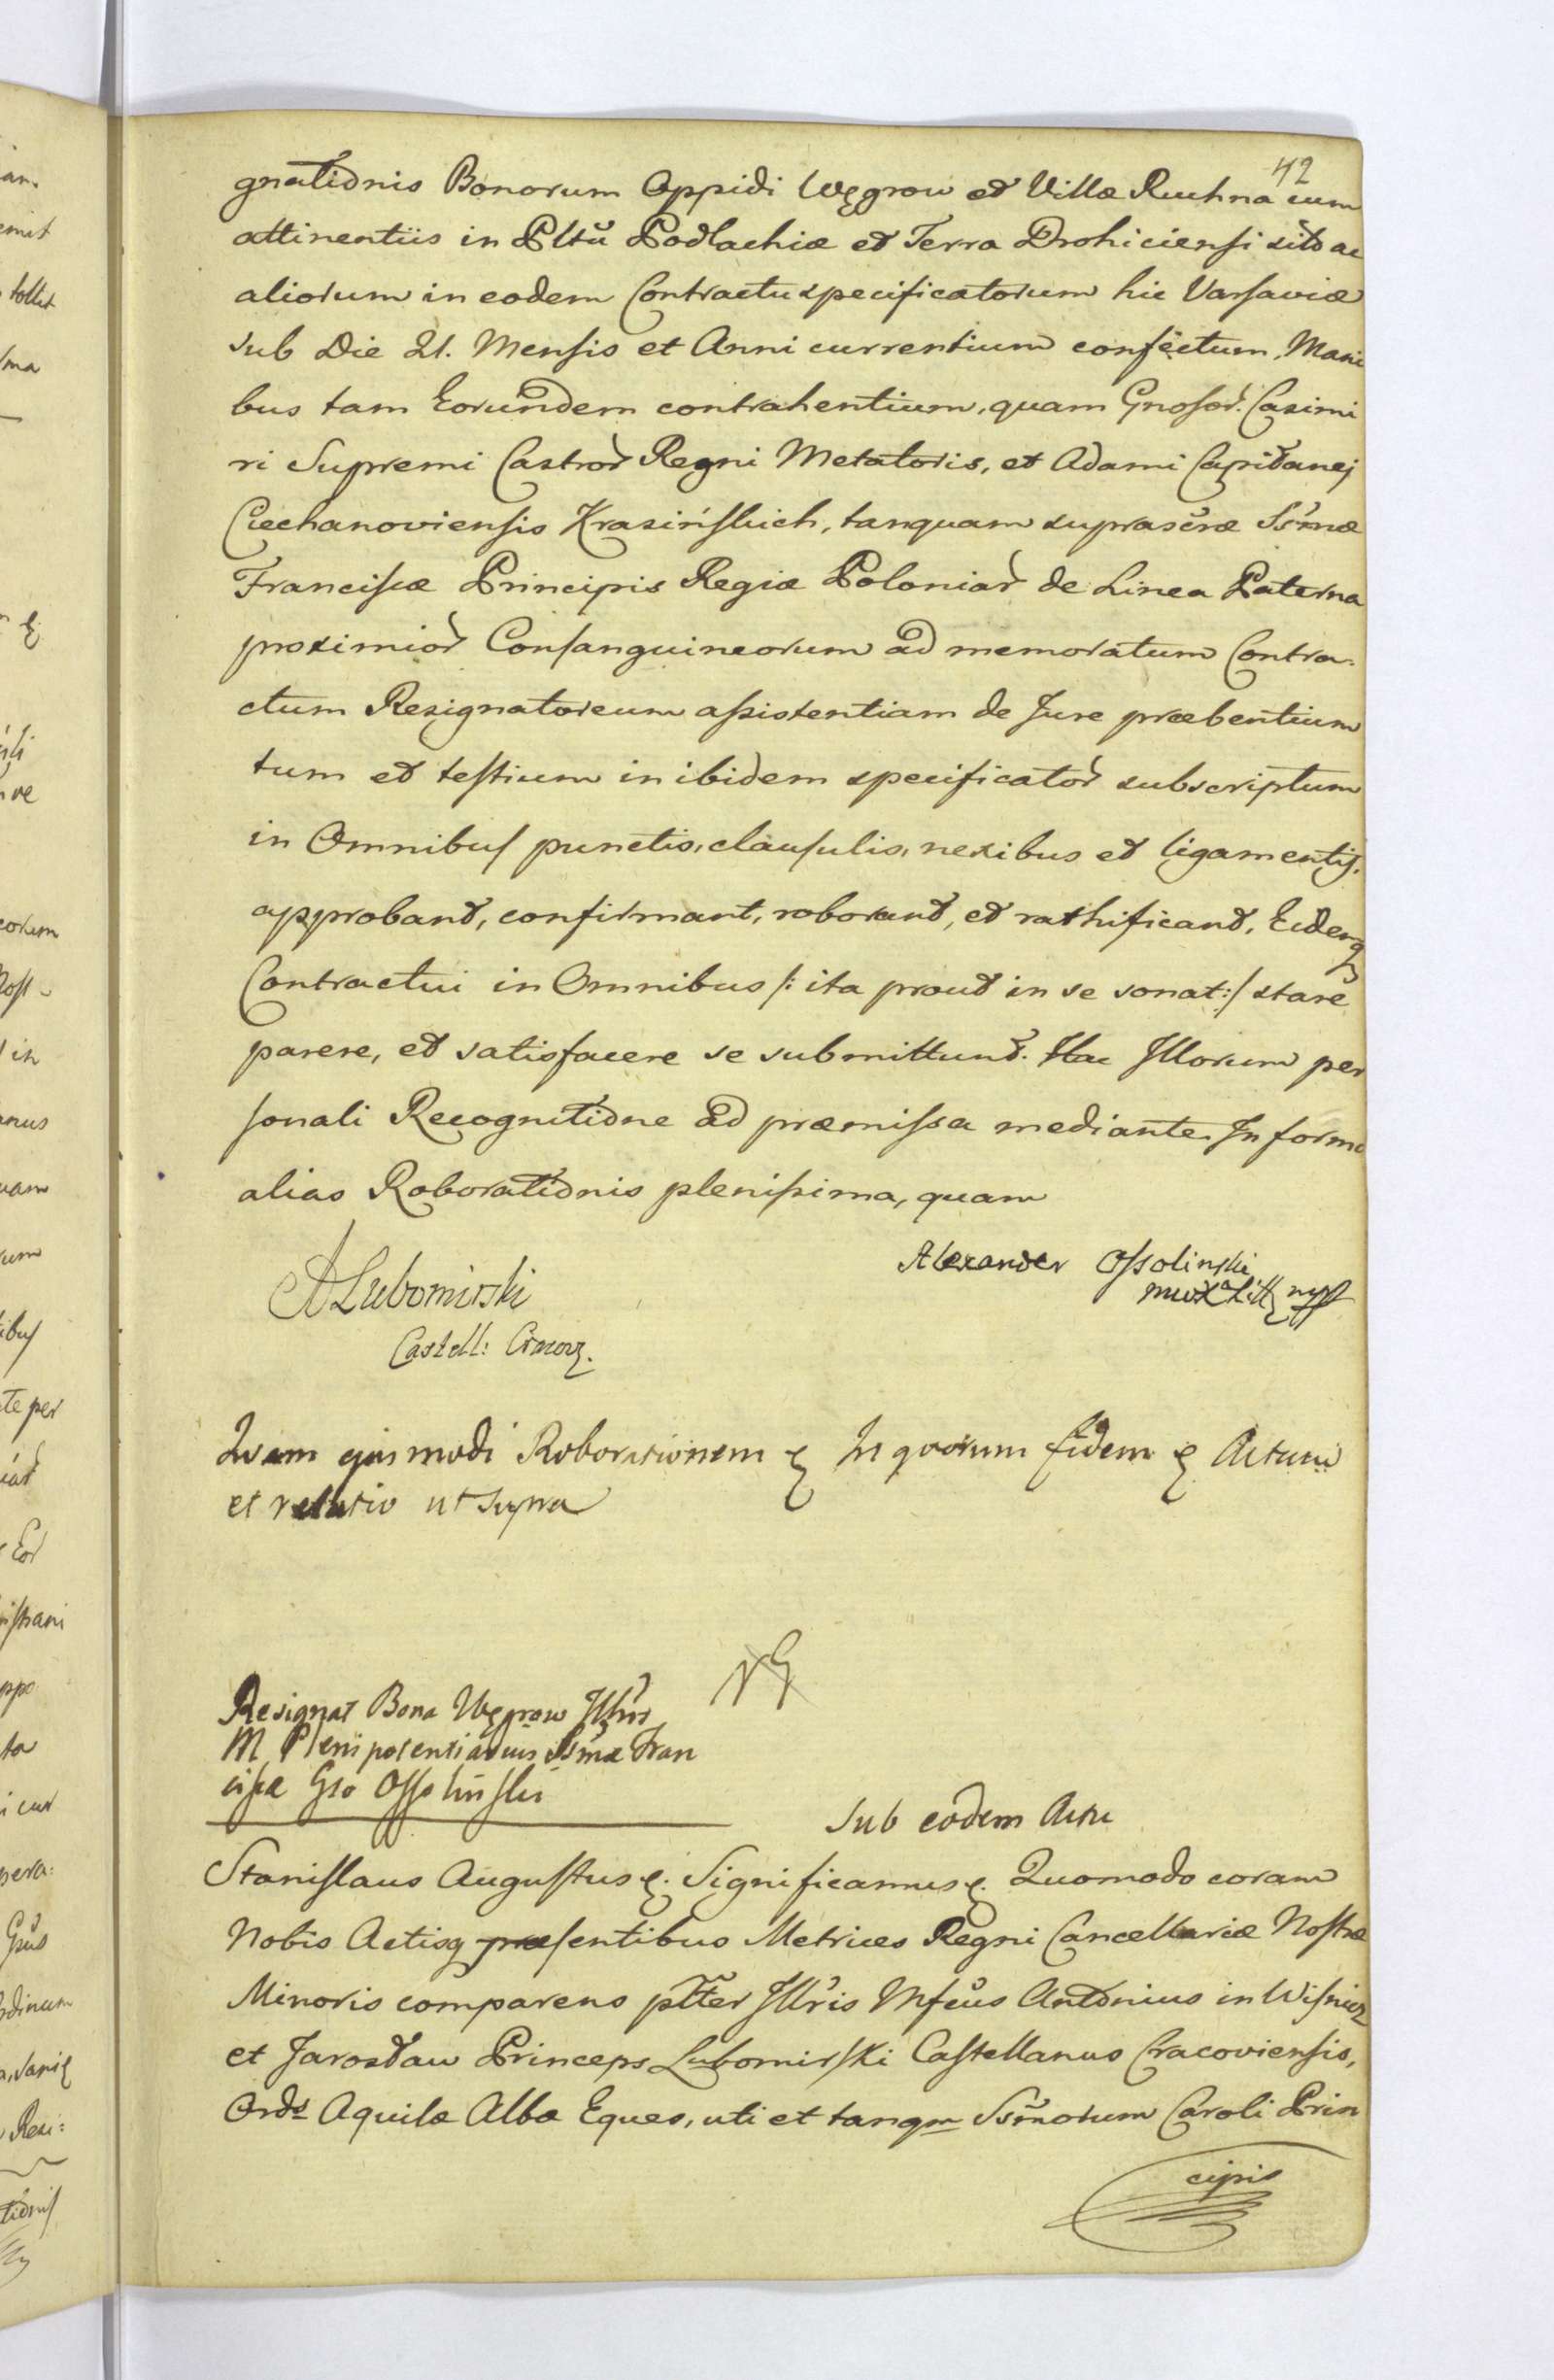 42
gnationis Bonorum Oppidi Węgrow et Villæ Ruchna cum
attinentiis in Pltŭ Podlachiæ et Terra Drohiciensi sitŏ ac
aliorum in eodem Contractu specificatorum hic Varsaviæ
sub Die 21. Mensis et Anni currentium confectum, Mani
bus tam Eorundem contrahentium, quam Gnosor. Casimi
ri Supremi Castror Regni Metatoris, et Adami Capitanej
Ciechanoviensis Krasińskich, tanquam suprascræ Ssmæ
Franciscæ Principis Regiæ Poloniar de Linea Paterna
proximior Consanguineorum ad memoratum Contra-
ctum Resignatoreum assistentiam de Jure præbentium
tum et testium in ibidem specificator subscriptum
in Omnibus punctis, clausulis, nexibus et ligamentis,
approbant, confirmant, roborant, et rathificant, Eidemq
Contractui in Omnibus /: ita prout in se sonat :/ stare
parere, et satisfacere se submittunt. Hac Illorum per
sonali Recognitione ad præmissa mediante. In forma
alias Roborationis plenissima, quam
Alexander Ossolinski
ALubomirski
Castell: Cracov.
Quam ejusmodi Roborationem & In quorum fidem & Actum
et relatio ut supra
Resignat Bona Węgrow Illris
M Plenipotentiarius Ssmæ Fran
ciscæ Gso Ossolinski
Sub eodem Actu
Stanislaus Augustus &. Significamus &. Quomodo coram
Nobis Actisq præsentibus Metrices Regni Cancellariæ Nostræ
Minoris comparens pltter Illris Mfcus Antonius in Wisnicz
et Jarosław Princeps Lubomirski Castellanus Cracoviensis,
Ords Aquilæ Albæ Eques, uti et tanqm Ssmorum Caroli Prin
cipis